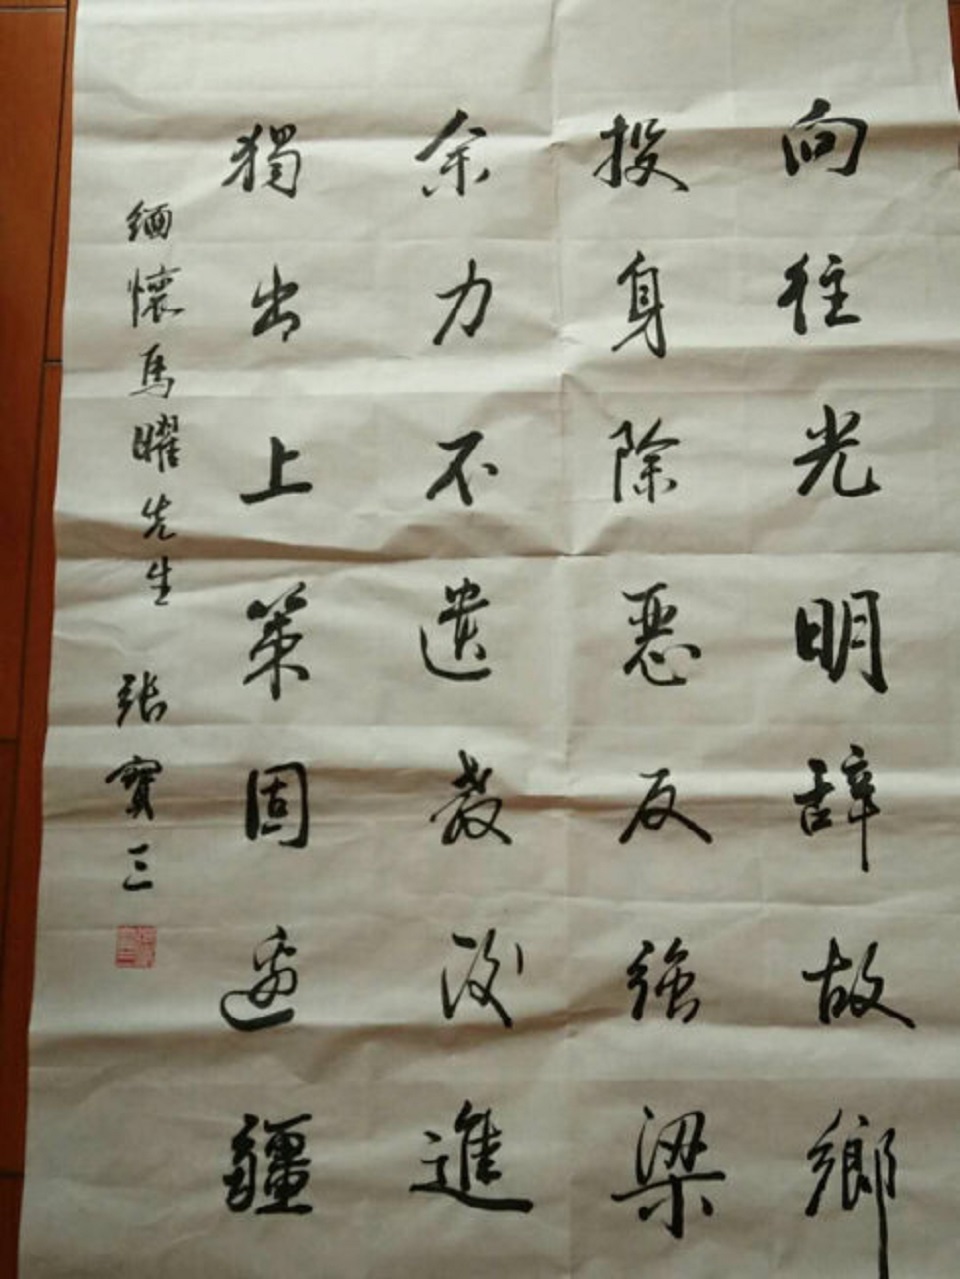 向往光明辞故鄉
投身除惡反強梁
余力不遺教後進
獨出上策固邊疆
緬懷馬曜先生 張寶三